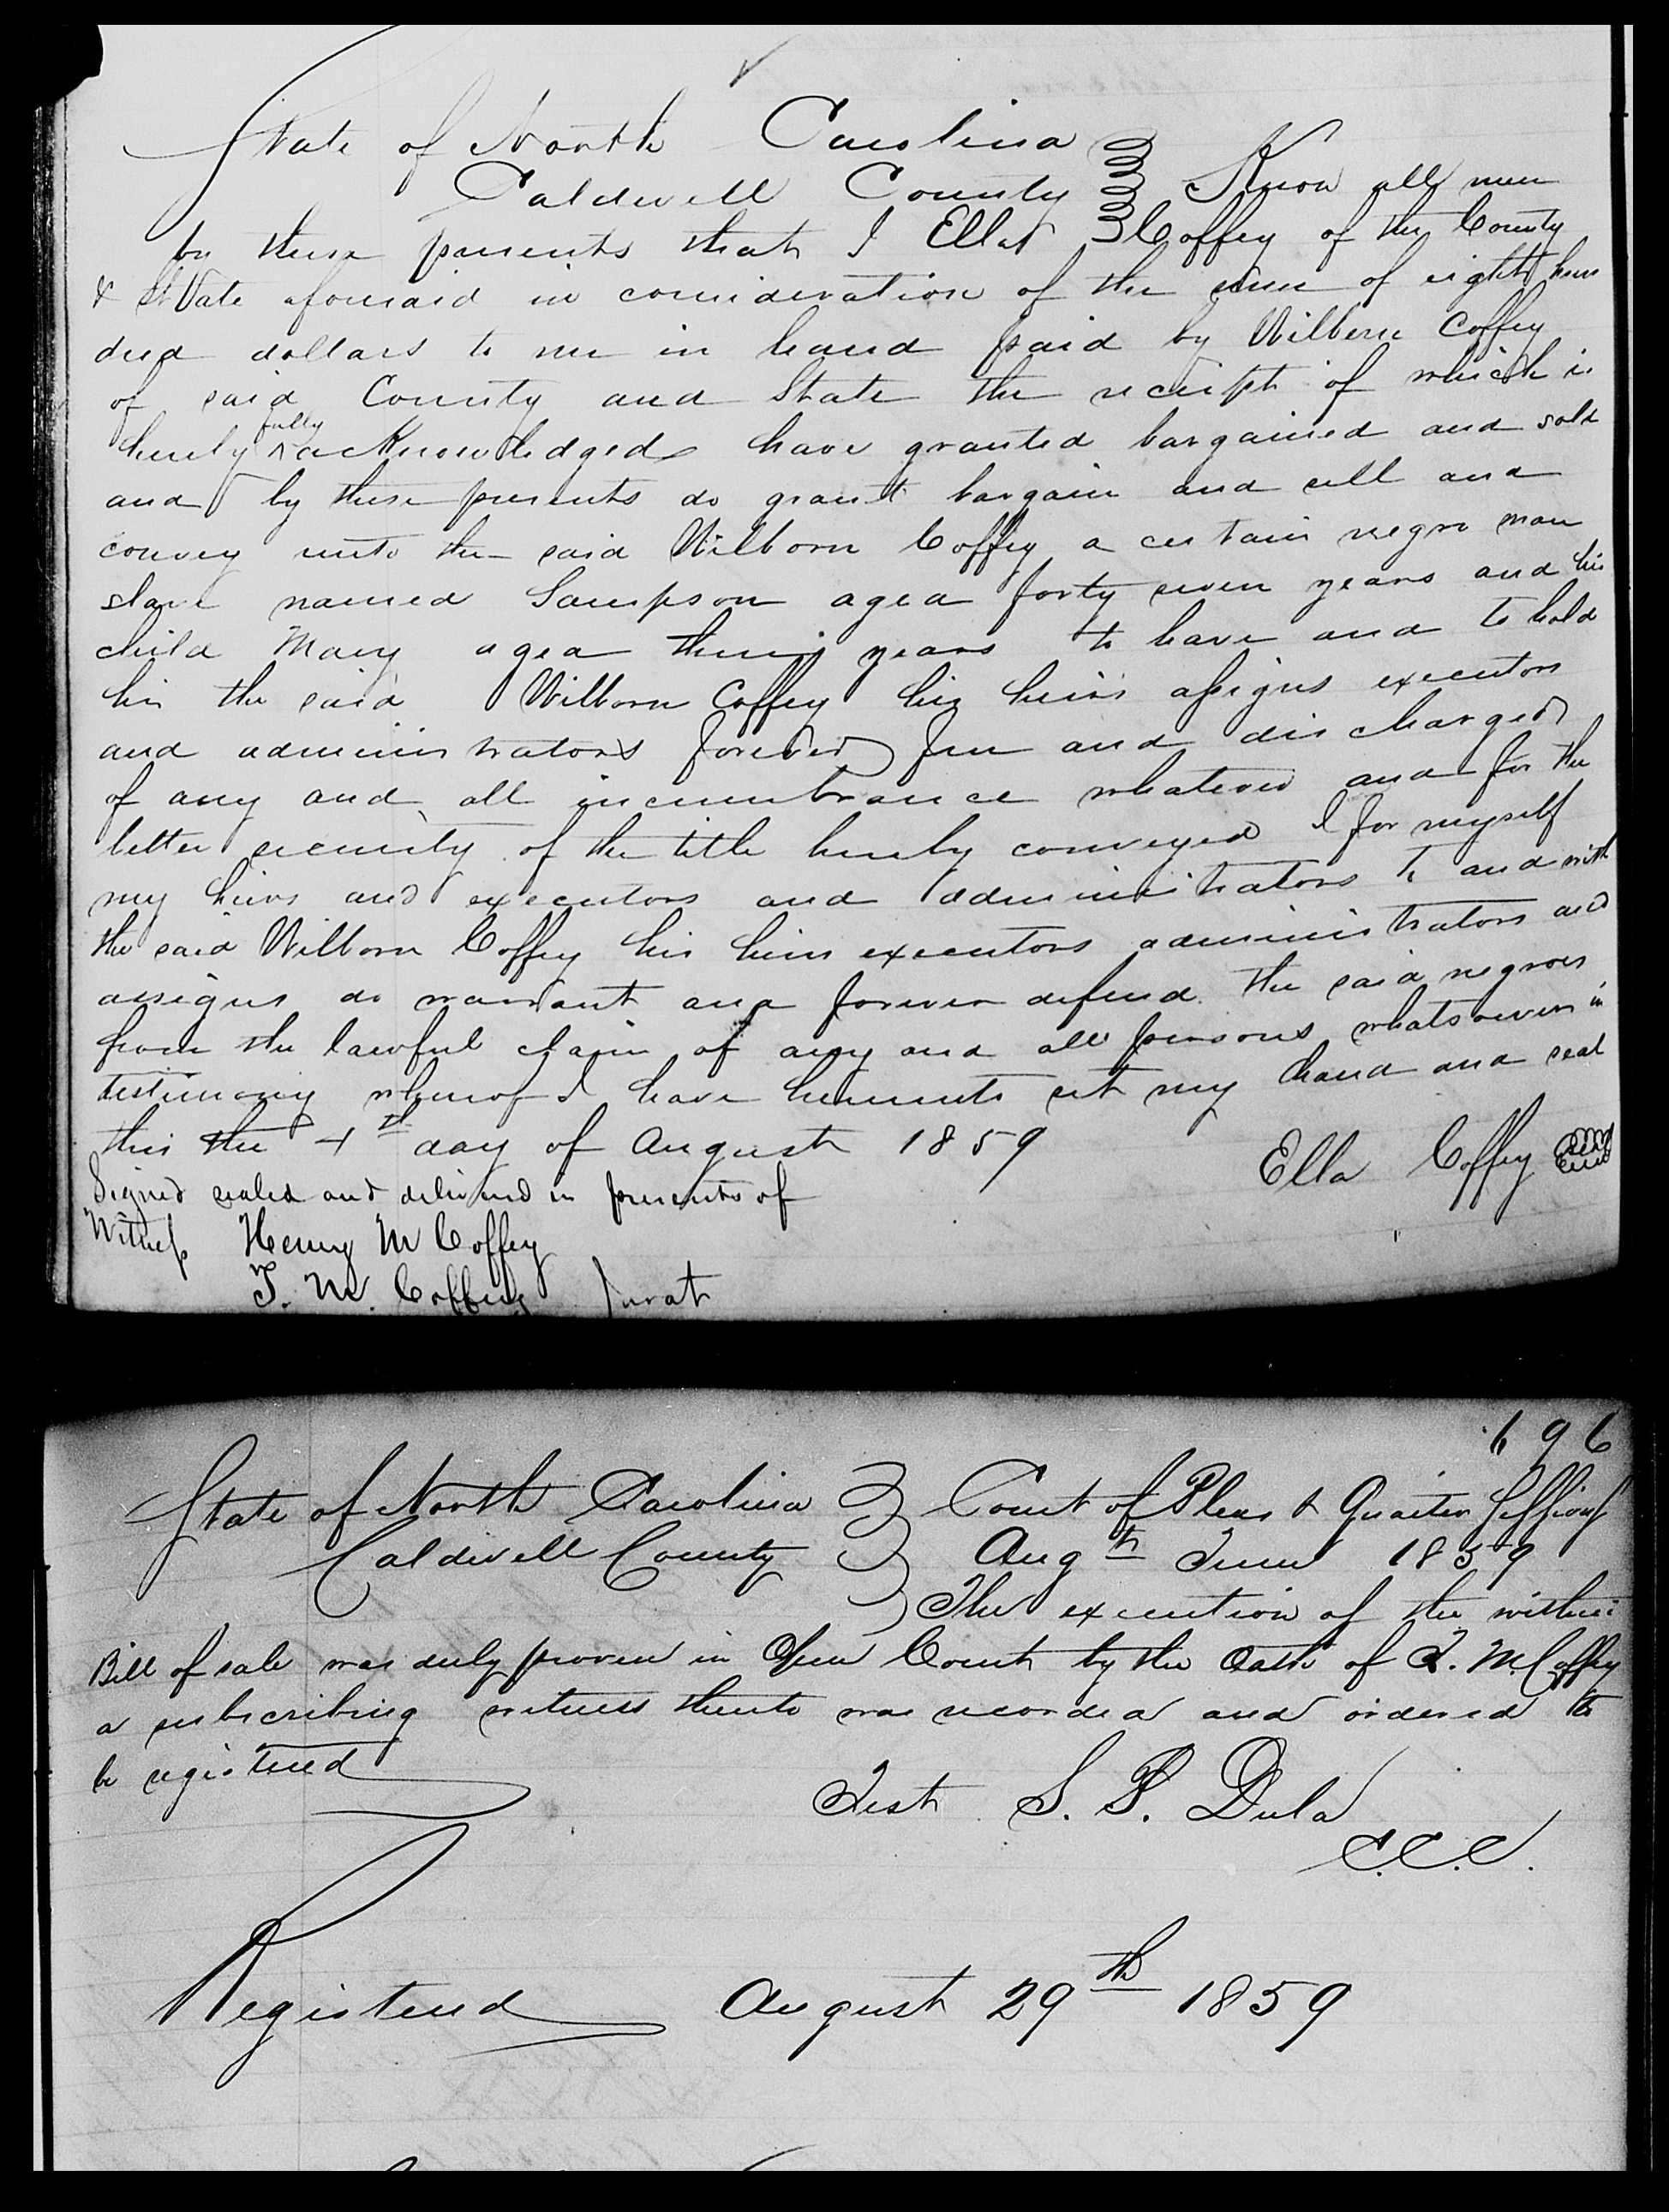 State of North Carolina
Caldwell County Know all men
by these presents that I Ella Coffey of the County
& State aforesaid in consideration of the sum of eight hun
dred dollars to me in hand paid by Wilborn Coffey
of said County and State the receipt of which is
hereby fully acknowledged have granted bargained and sold
and by these presents do grant bargain and sell and
convey unto the said Wilborn Coffey a certain negro man
slave named Sampson aged forty seven years and his
child Mary aged years to have and to hold
him the said Wilborn Coffey his heirs assigns executors
and administrators forever free and discharged
of any and all incumbrance whatever and for the
better security of the title hereby conveyed I for myself
my heirs and executors and administrators to and with
the said Wilborn Coffey his heirs executors administrators and
assigns do warrant and forever defend the said negroes
from the lawful claim of any and all persons whatsoever in
testimony whereof I have hereunto set my hand and seal
this the 4th day of August 1859
Ella Coffey
Signed sealed and delivered in presents of
Witness Henry M Coffey
T. M. Coffey Jurat
696
State of North Carolina Court of Pleas & Quarter Sessions
Caldwell County Aug th Term 1859
The execution of the within
Bill of sale was duly proven in Open Court by the Oath of T. M. Coffey
a subscribing witness thereto was recorded and ordered to
be registered
Test S. P. Dula
C.C.C.
Registered August 29th 1859